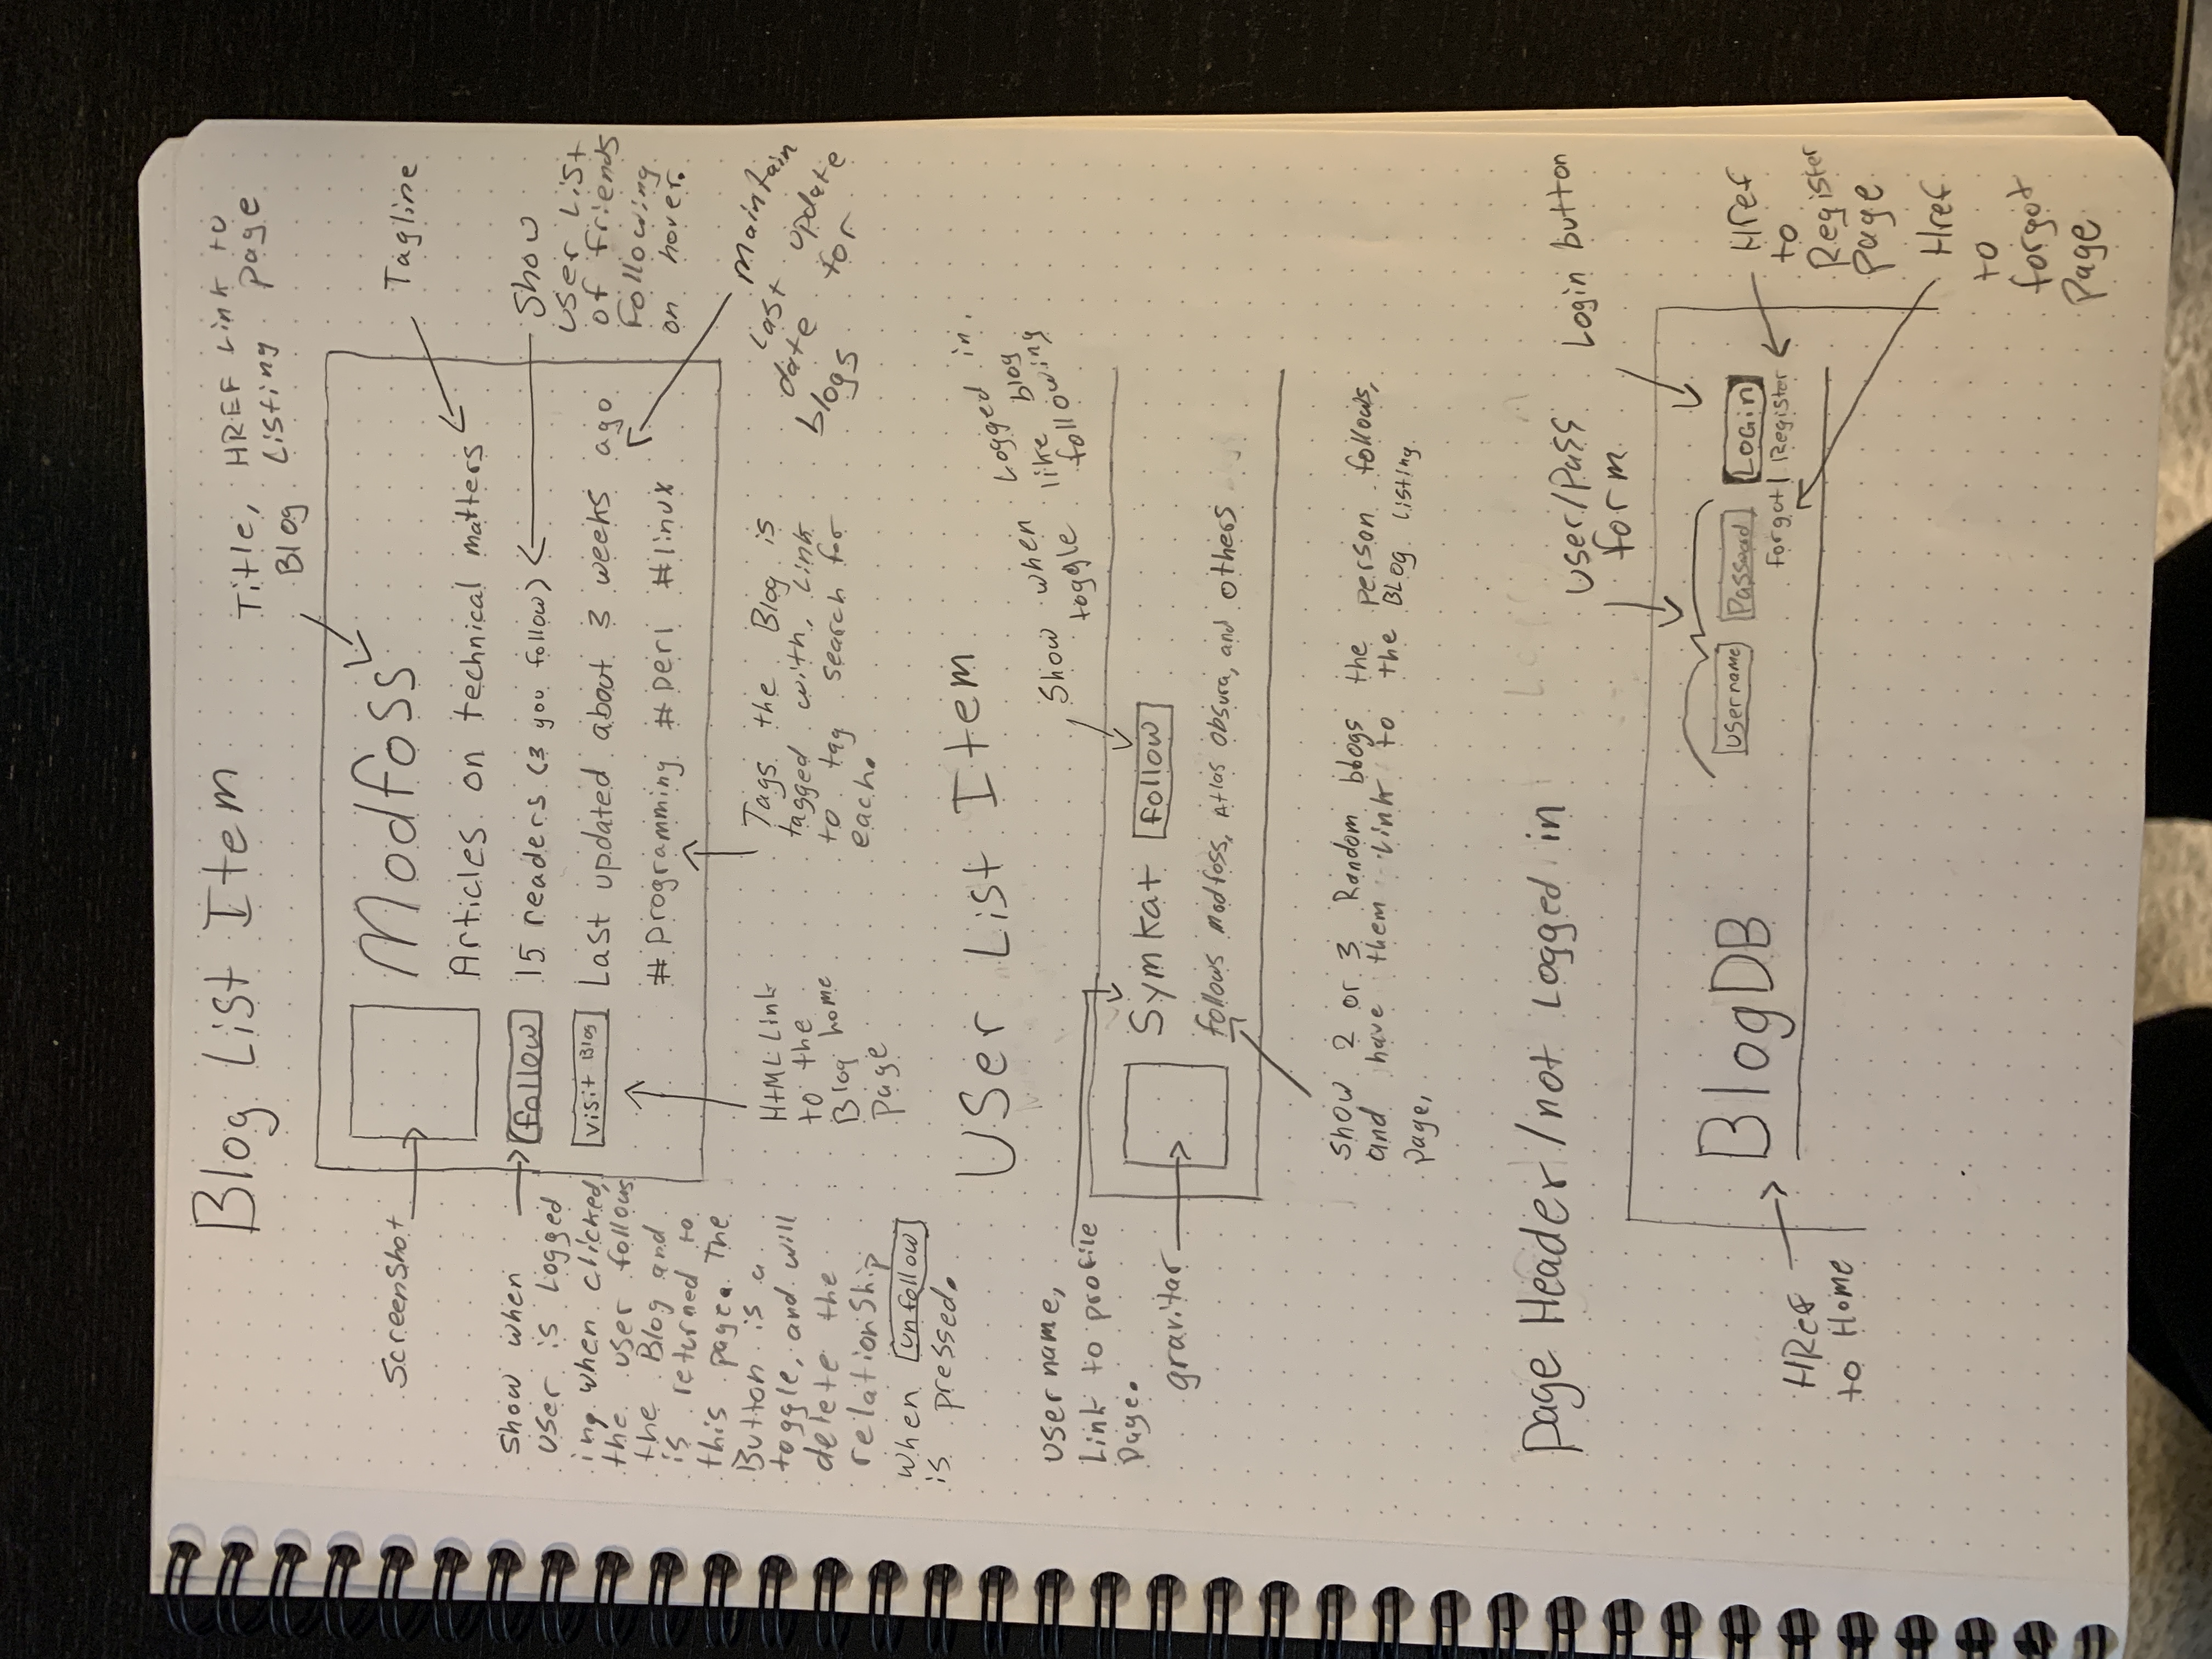 Blog List Item
Title, HREF Link to
Blog Listing page
Screenshot
Modfoss
Tagline
Articles on technical matters
Follow
15 readers (3 you follow)
Show
User List
of friends
Following
on hover.
visit Blog
Last updated about 3 weeks ago
#programming #perl #linux
maintain
last update
date for
blogs
show when
user is Logged
ing when clicked,
the user follows
the Blog and
is returned to
this page. The
Button is a
toggle, and will
delete the
relationship
when unfollow
is pressed.
HTML Link
to the
Blog home
page
Tags the Blog is
tagged with, Link
to tag search for
each.
User List Item
Show when Logged in.
toggle like blog
following
username,
Link to profile
page.
gravitar
Symkat
Follow
follows modfoss, Atlas obsura, and others
show 2 or 3 Random blogs the person follows,
and have them link to the BLog Listing
page,
Page Header/not Logged in
user/Pass
form
Login button
BlogDB
username
Password
Login
Forgot | Register
HRef
to Home
HRef
to
Register
Page
Href
to
forgot
Page